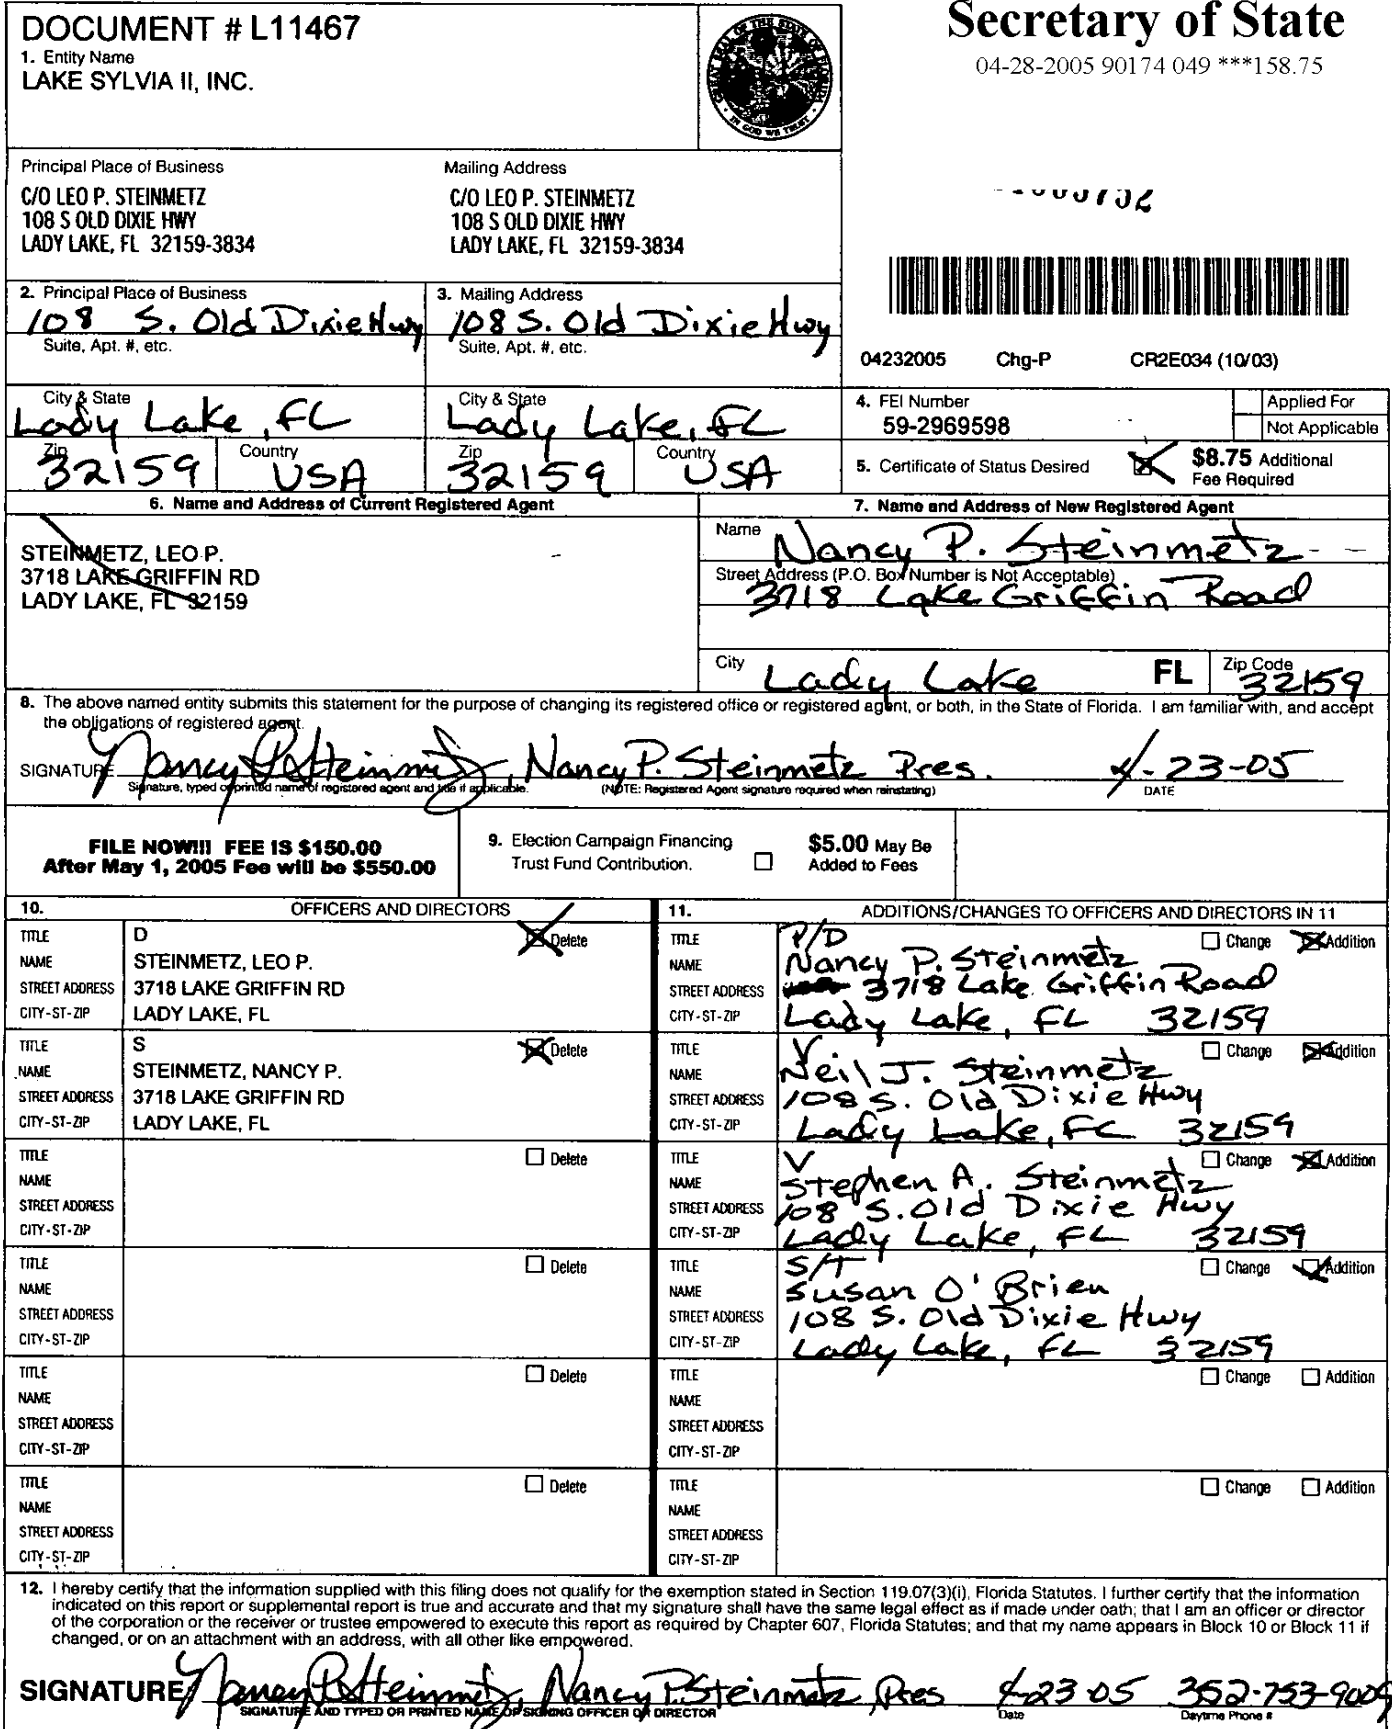 DOCUMENT # L11467
1. Entity Name
LAKE SYLVIA II, INC.
Secretary of State
04-28-2005 90174 049 ***158.75
Principal Place of Business
C/O LEO P. STEINMETZ
108 S OLD DIXIE HWY
LADY LAKE, FL 32159-3834
Mailing Address
C/O LEO P. STEINMETZ
108 S OLD DIXIE HWY
LADY LAKE, FL 32159-3834
2. Principal Place of Business
108 S. Old Dixie Hwy
Suite, Apt. #, etc.
3. Mailing Address
108 S. Old Dixie Hwy
Suite, Apt. #, etc.
04232005 Chg-P CR2E034 (10/03)
City & State
Lady Lake, FL
City & State
Lady Lake, FL
Zip
32159
Country
USA
Zip
32159
Country
USA
4. FEI Number
59-2969598
Applied For
Not Applicable
5. Certificate of Status Desired
$8.75 Additional
Fee Required
6. Name and Address of Current Registered Agent
STEINMETZ, LEO P.
3718 LAKE GRIFFIN RD
LADY LAKE, FL 32159
7. Name and Address of New Registered Agent
Name
Nancy P. Steinmetz
Street Address (P.O. Box Number is Not Acceptable)
3718 Lake Griffin Road
City
Lady Lake
FL
Zip Code
32159
8. The above named entity submits this statement for the purpose of changing its registered office or registered agent, or both, in the State of Florida. I am familiar with, and accept
the obligations of registered agent.
SIGNATURE Nancy P Steinmetz, Nancy P. Steinmetz Pres. 4-23-05
Signature, typed or printed name of registered agent and title if applicable. (NOTE: Registered Agent signature required when reinstating) DATE
FILE NOW!!! FEE IS $150.00
After May 1, 2005 Fee will be $550.00
9. Election Campaign Financing
Trust Fund Contribution.
$5.00 May Be
Added to Fees
10. OFFICERS AND DIRECTORS
TITLE D Delete
NAME STEINMETZ, LEO P.
STREET ADDRESS 3718 LAKE GRIFFIN RD
CITY-ST-ZIP LADY LAKE, FL
TITLE S Delete
NAME STEINMETZ, NANCY P.
STREET ADDRESS 3718 LAKE GRIFFIN RD
CITY-ST-ZIP LADY LAKE, FL
TITLE Delete
NAME
STREET ADDRESS
CITY-ST-ZIP
TITLE Delete
NAME
STREET ADDRESS
CITY-ST-ZIP
TITLE Delete
NAME
STREET ADDRESS
CITY-ST-ZIP
TITLE Delete
NAME
STREET ADDRESS
CITY-ST-ZIP
11. ADDITIONS/CHANGES TO OFFICERS AND DIRECTORS IN 11
TITLE P/D Change Addition
NAME Nancy P. Steinmetz
STREET ADDRESS 3718 Lake Griffin Road
CITY-ST-ZIP Lady Lake, FL 32159
TITLE V Change Addition
NAME Neil J. Steinmetz
STREET ADDRESS 108 S. Old Dixie Hwy
CITY-ST-ZIP Lady Lake, FL 32159
TITLE V Change Addition
NAME Stephen A. Steinmetz
STREET ADDRESS 108 S. Old Dixie Hwy
CITY-ST-ZIP Lady Lake, FL 32159
TITLE S/T Change Addition
NAME Susan O'Brien
STREET ADDRESS 108 S. Old Dixie Hwy
CITY-ST-ZIP Lady Lake, FL 32159
TITLE Change Addition
NAME
STREET ADDRESS
CITY-ST-ZIP
TITLE Change Addition
NAME
STREET ADDRESS
CITY-ST-ZIP
12. I hereby certify that the information supplied with this filing does not qualify for the exemption stated in Section 119.07(3)(i), Florida Statutes. I further certify that the information
indicated on this report or supplemental report is true and accurate and that my signature shall have the same legal effect as if made under oath; that I am an officer or director
of the corporation or the receiver or trustee empowered to execute this report as required by Chapter 607, Florida Statutes; and that my name appears in Block 10 or Block 11 if
changed, or on an attachment with an address, with all other like empowered.
SIGNATURE Nancy P Steinmetz, Nancy P. Steinmetz, Pres 4-23-05 352-753-9009
SIGNATURE AND TYPED OR PRINTED NAME OF SIGNING OFFICER OR DIRECTOR Date Daytime Phone #